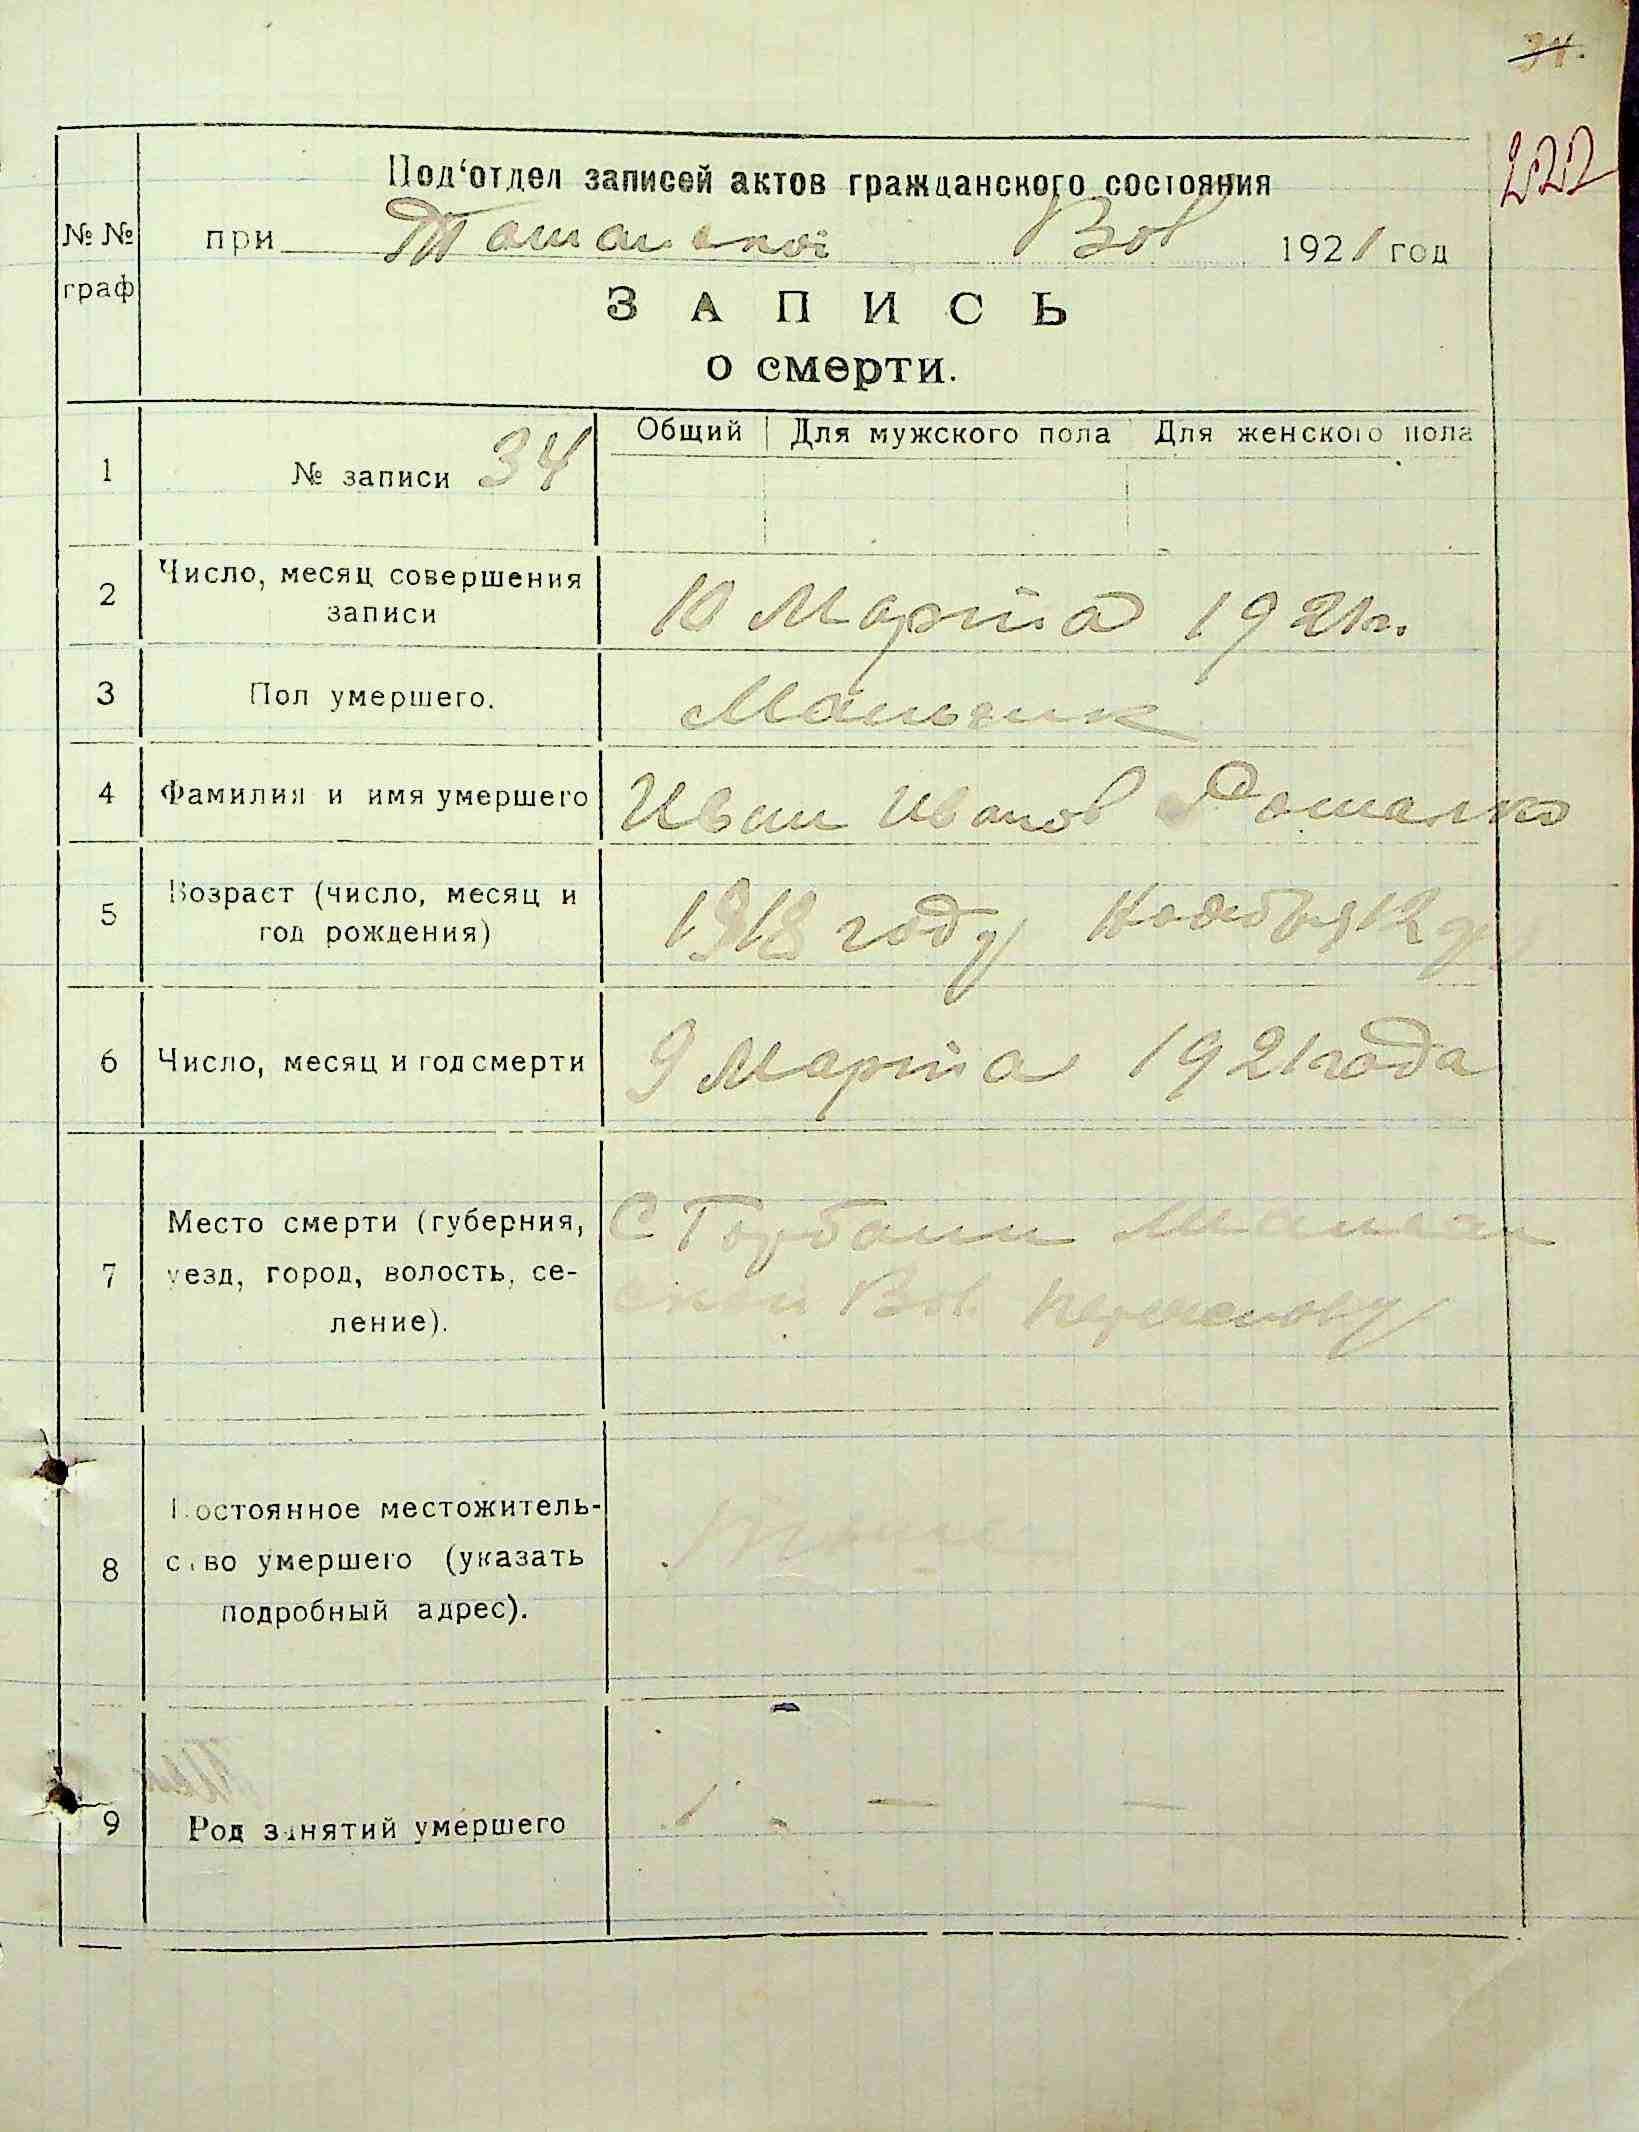 34.
222
Под'отдел записей актов гражданского состояния
№ №
граф
при Ташанской Вол 1921 год
ЗАПИСЬ
о смерти.
1
№ записи 34
Общий Для мужского пола Для женского пола
2
Число, месяц совершения
записи
10 Марта 1921 г.
3
Пол умершего.
Мальчик
4
Фамилия и имя умершего
Иван Иванов
5
Возраст (число, месяц и
год рождения)
1918 году Ноября 12 д
6
Число, месяц и год смерти
9 Марта 1921 года
7
Место смерти (губерния,
уезд, город, волость, се-
ление).
С Горбани
Вол.
8
Постоянное местожитель-
ство умершего (указать
подробный адрес).
9
Род занятий умершего